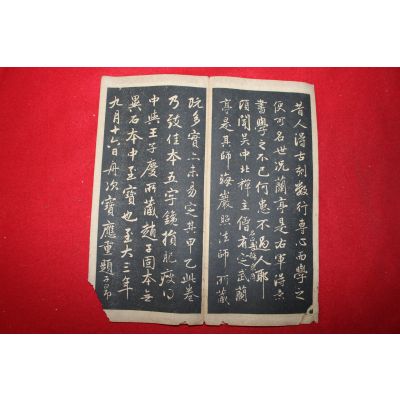 昔人得古刻數行專心而學之
便可名世況蘭亭是右軍得意
書學之不已何患不過人耶
頃聞吳中北禪主僧有定武蘭
亭是其師晦巖照法師所藏
既多實亦未易定其甲乙此卷
乃致佳本五字鑱損肥瘦得
中與王子慶所藏趙子固本無
異石本中至寶也至大三年
九月十六日舟次寶應重題子昂